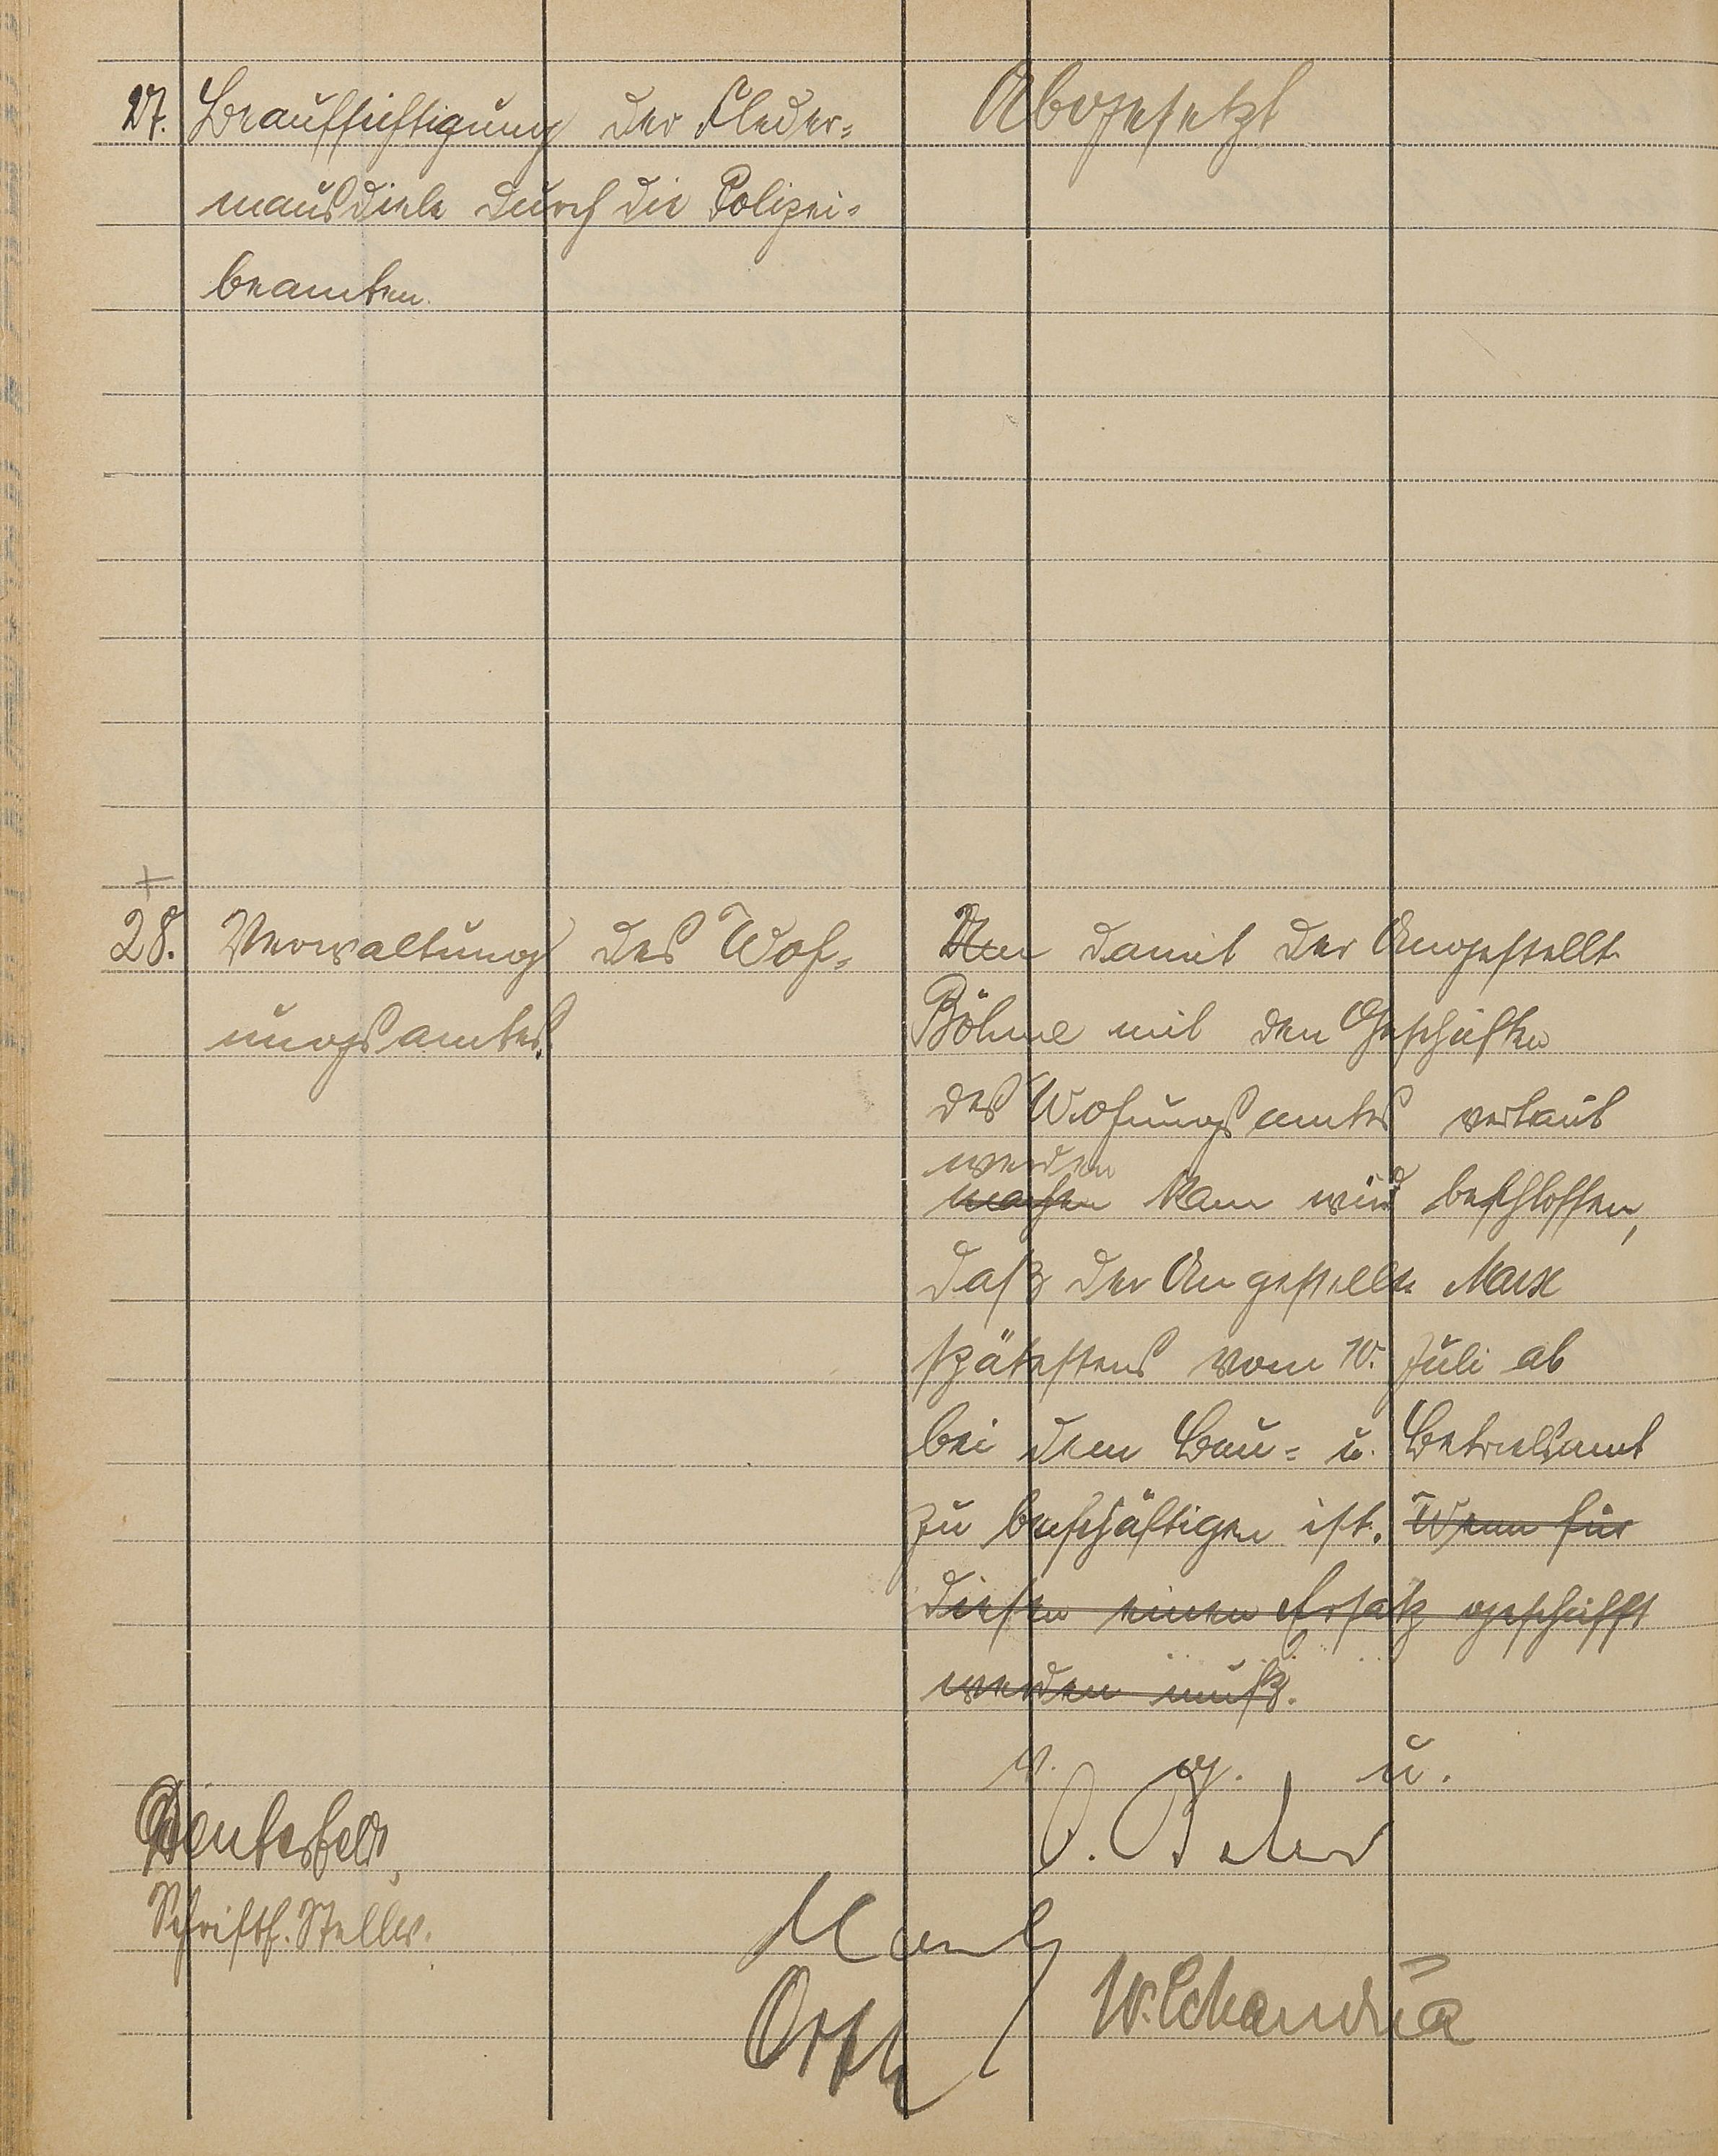 27. Beaufsichtigung der Fleder-
mausdiele durch die Polizei-
beamten.
Abgesetzt
28. Verwaltung des Woh-
nungsamtes.
Um damit der Angestellte
Böhme mit den Geschäften
des Wohnungsamtes vertraut
werden
machen kann wird beschlossen,
daß der Angestellte Marx
spätestens vom 10. Juli ab
bei dem Bau- u. Betriebsamt
zu beschäftigen ist. Wenn für
diesen einen Ersatz geschafft
werden muß.
v. g. u.
Schriftf. Stellv.
Orth